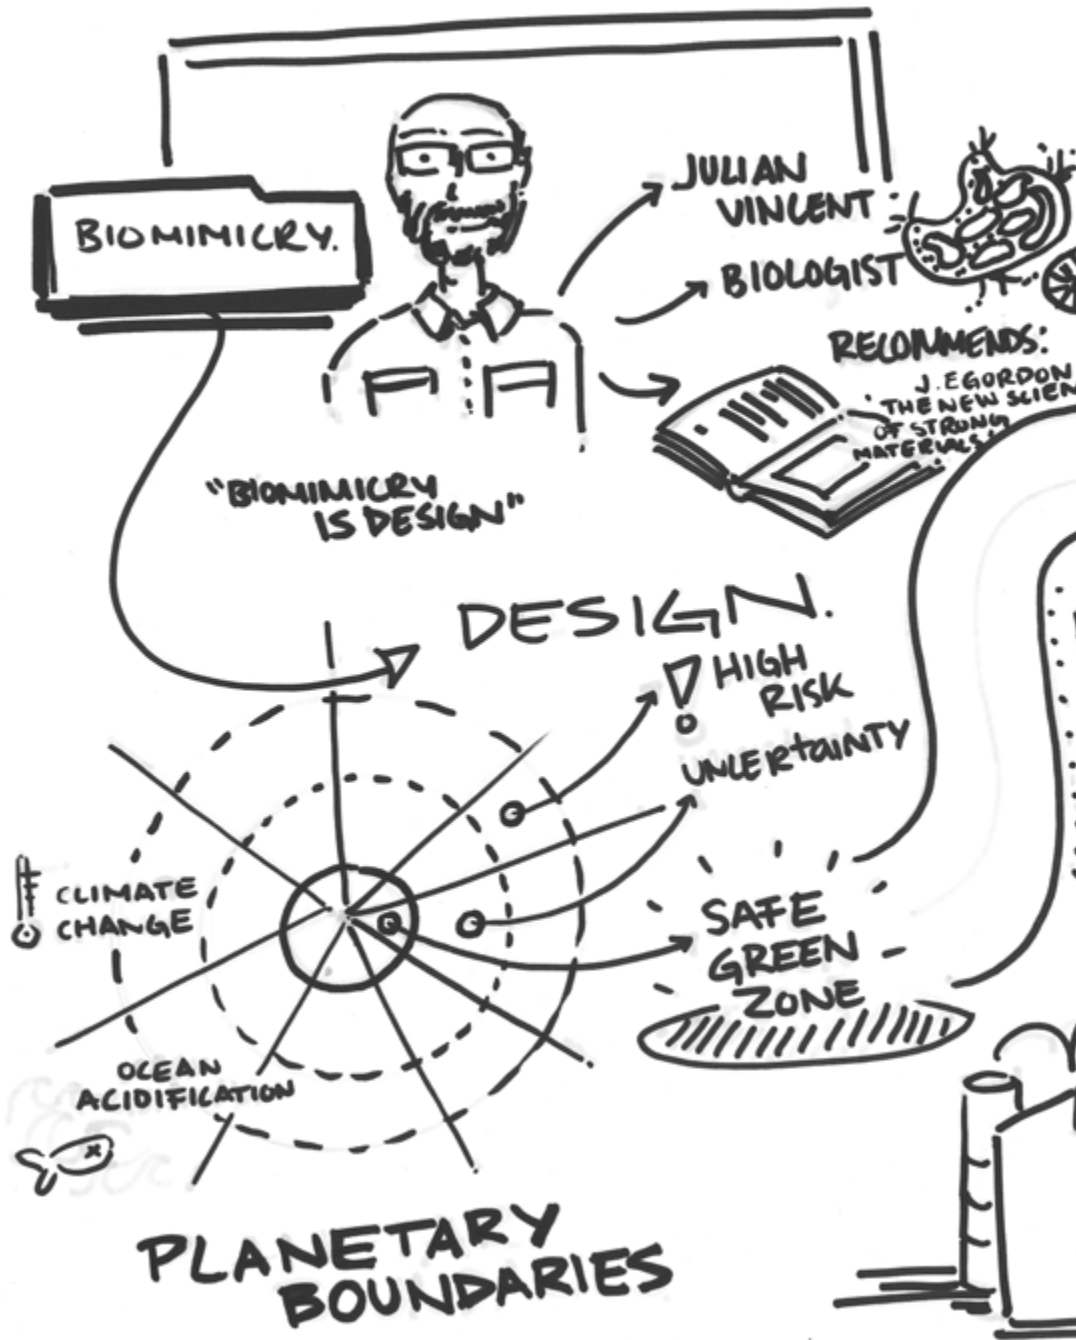 BIOMIMICRY.
JULIAN
VINCENT
BIOLOGIST
RECOMMENDS:
J.E GORDON
THE NEW SCIEN
OF STRONG
MATERIALS
"BIOMIMICRY
IS DESIGN"
DESIGN.
HIGH
RISK
UNCERtaINTY
CLIMATE
CHANGE
SAFE
GREEN
ZONE
OCEAN
ACIDIFICATION
PLANETARY
BOUNDARIES